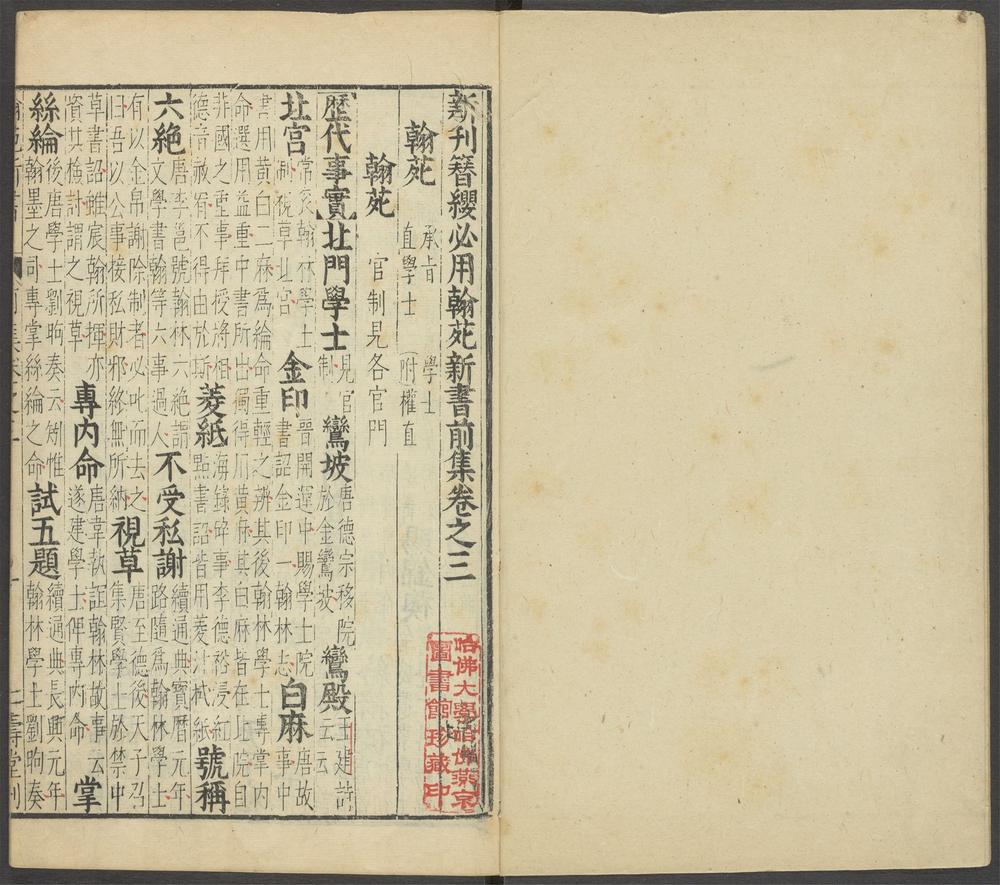 新刊簪纓必用翰苑新書前集卷之三
翰苑 承旨 學士 直學士 (附權直)
翰苑 官制見各官門
【歷代事實】北門學士 見官制 鸞坡 唐德宗移院於金鸞坡 鸞殿 王建詩云云
北宮 常袞翰林學士制視草北宮 金印 晉開運中賜學士院書詔金印一翰林志 白麻 唐故事中
書用黃白二麻爲綸命重輕之辨其後翰林學士專掌內
命選用益重中書所出獨得用黃麻其白麻皆在北院自
非國之重事拜授將相德音赦宥不得由於斯 菱紙 海錄碎事李德裕浸紅點書詔皆用菱汁栻紙 號稱
六絶 唐李邕號翰林六絶謂文學書翰等六事過人 不受私謝 續通典寶曆元年路隨爲翰林學士
有以金帛謝除制者必叱而去之曰吾以公事接私財邪終無所納 視草 唐至德後天子召集賢學士於禁中
草書詔雖宸翰所揮亦資其檢討謂之視草 專內命 唐韋執誼翰林故事云遂建學士俾專內命 掌
絲綸 後唐學士劉昫奏云矧惟翰墨之司專掌絲綸之命 試五題 續通典長興元年翰林學士劉昫奏
哈佛大學哈佛燕京
圖書館珍藏印